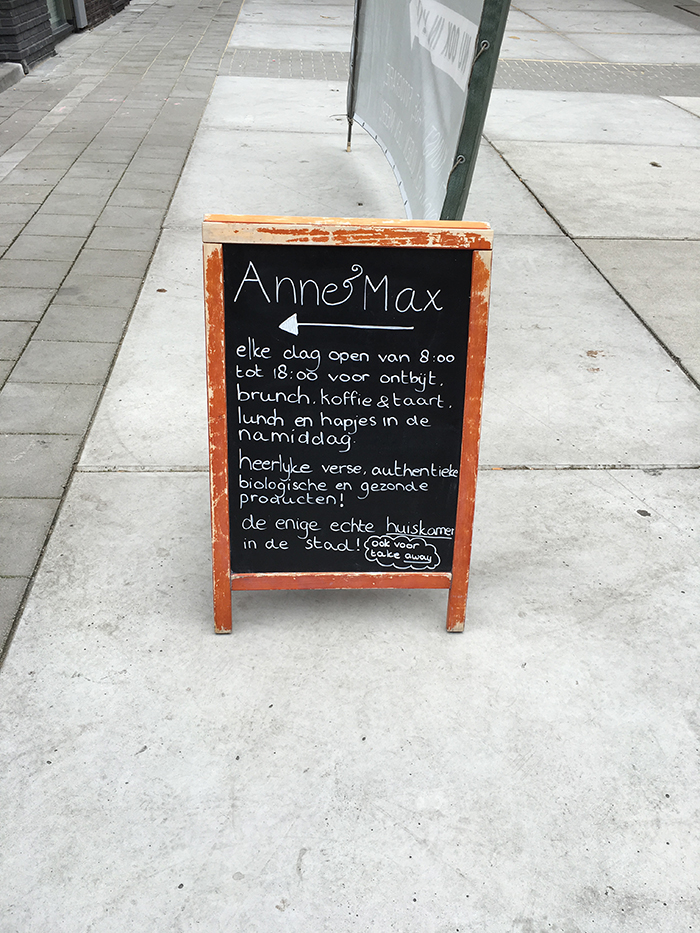 Anne & Max
elke dag open van 8:00
tot 18:00 voor ontbijt,
brunch, koffie & taart,
lunch en hapjes in de
namiddag.
heerlyke verse, authentieke
biologische en gezonde
producten!
de enige echte huiskamer
in de stad!
ook voor
take away